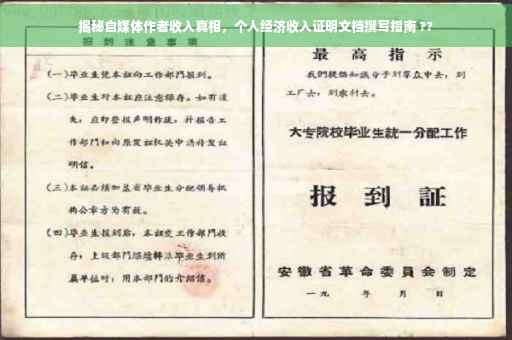 揭秘自媒体作者收入真相，个人经济收入证明文档撰写指南 ??
报到注意事项
(一)毕业生凭本证向工作部门报到。
(二)毕业生对本证应注意保存。如有遗
失，应即登报声明作废，并报告工
作部门和向原发证机关申请补发证
明信。
(三)本证必须加盖省毕业生分配领导机
构公章方为有效。
(四)毕业生报到后，本证交工作部门收
存；上级部门
属单位时，用本部门的介绍信。
最高指示
我们提倡知识分子到群众中去，到
工厂去，到农村去。
大专院校毕业生统一分配工作
报到证
安徽省革命委员会制定
一九 年 月 日